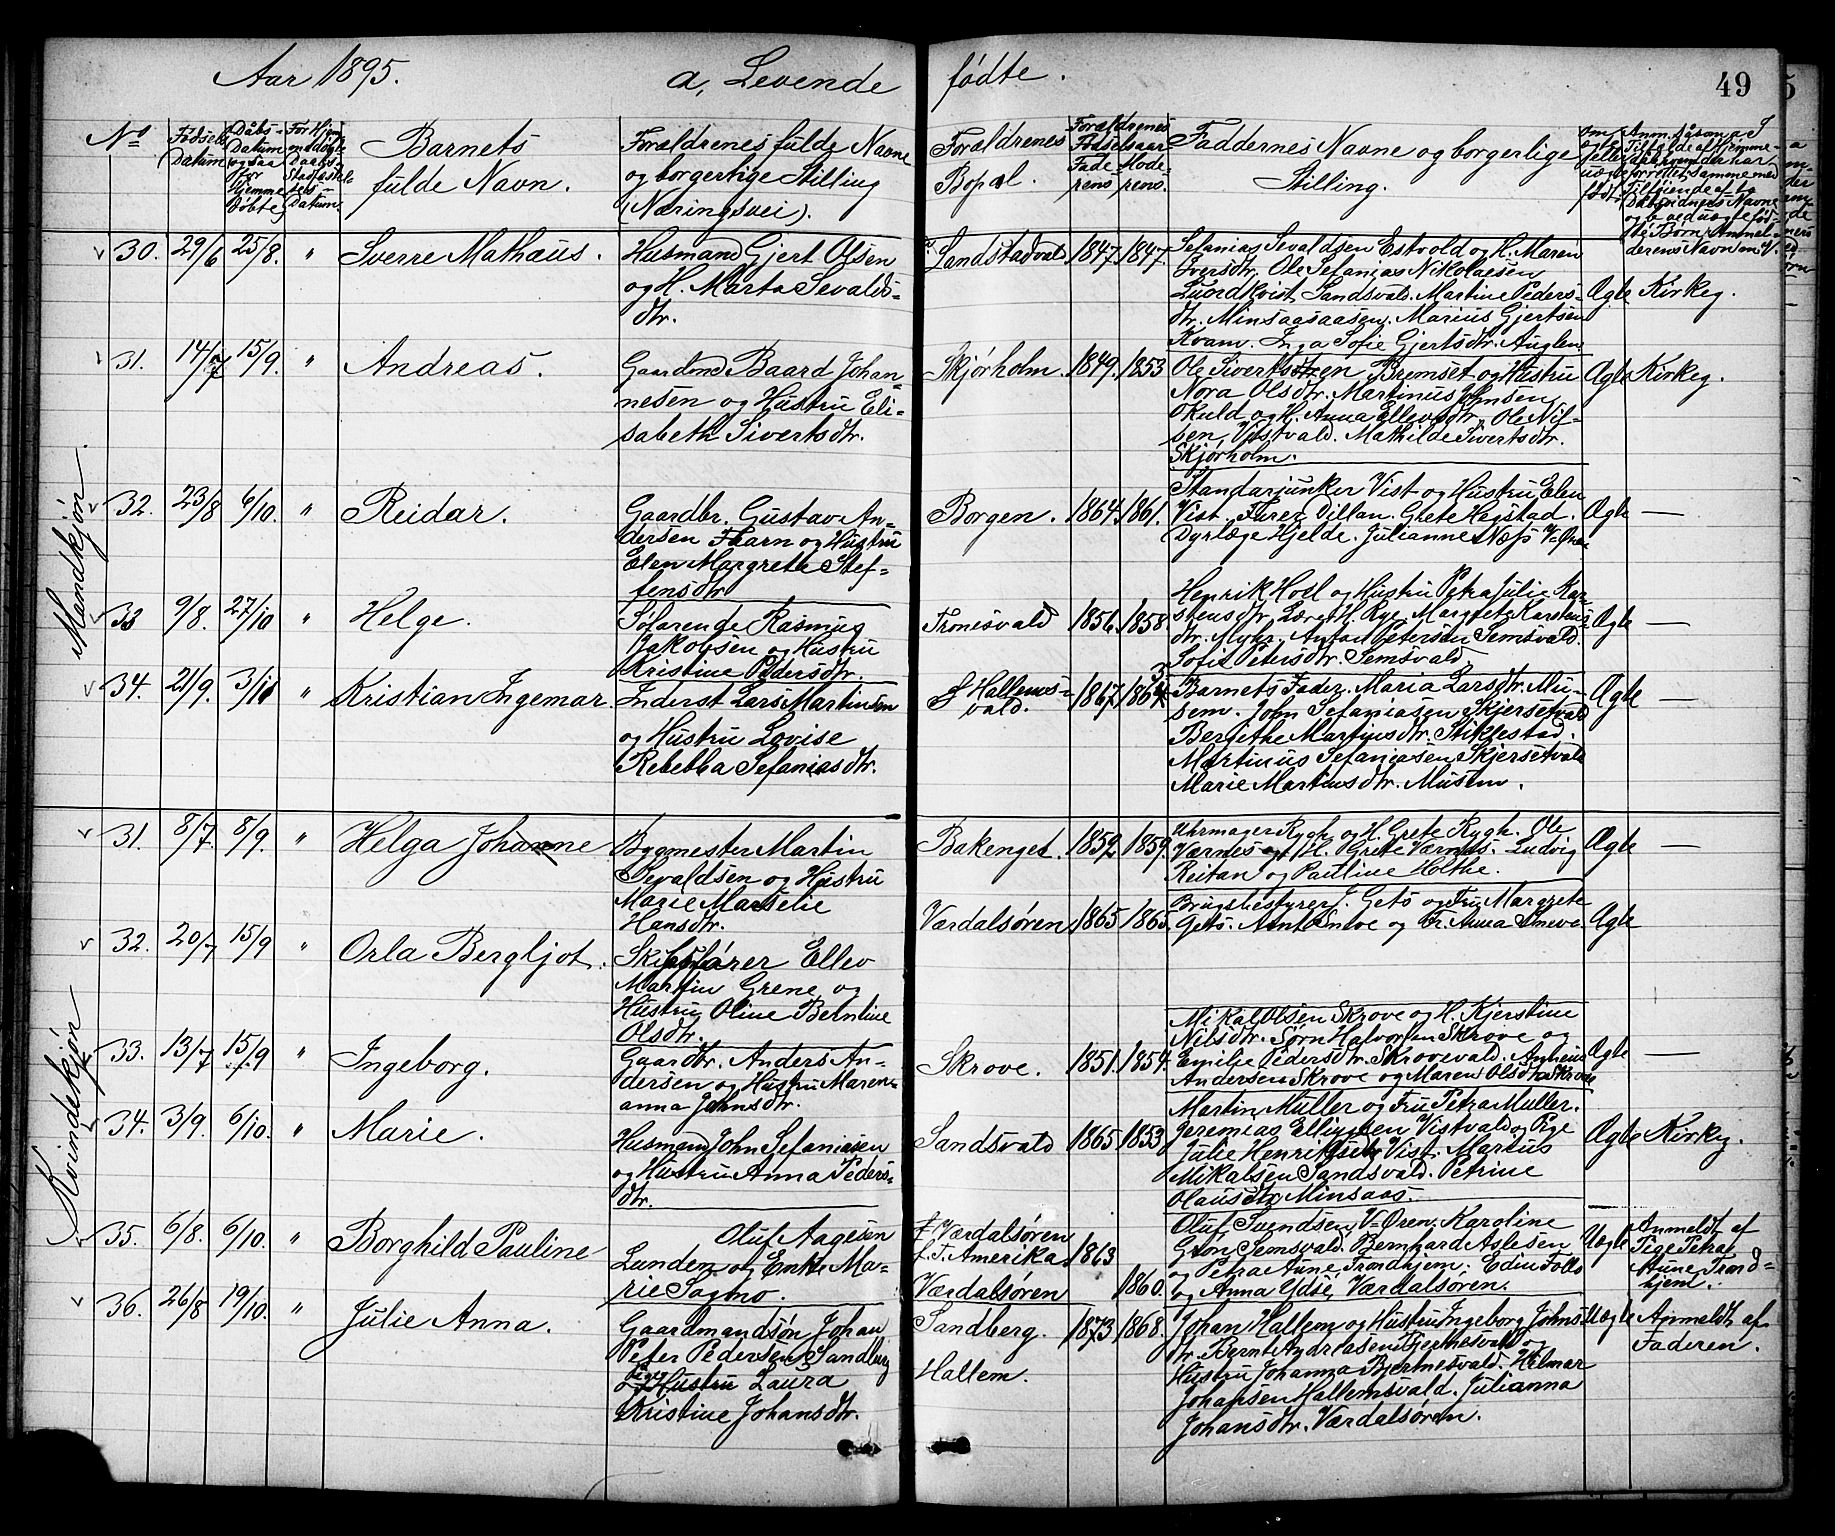 Aar 1895. a, Levende fødte. 49
No Fødsels Datum Daabs-Datum ogsaa for Hjemmedøbte
Barnets fulde Navn.
Forældrenes fulde Navne
og borgerlige Stilling
(Næringsvei).
Forældrenes Bopæl.
Forældrenes Fødselsaar
Faderens Moderens.
Faddernes Navne og borgerlige
Stilling.
Mandkjøn.
30. 29/6 25/8. " Sverre Mathæus.
Husmand Gjert Olsen
og H. Marta Sevalds-
dtr.
1847. 1847.
Sefanias Sevaldsen Estvold og H. Maren
Iversdtr. Ole Sefanias Nikolaesen
Sandsvald. Martine Peders-
dtr. Minsaasaasen. Marius Gjertsen
Kvam. Inga Sofie Gjertsdtr. Auglen.
Ægte Kirkeg.
31. 14/7 15/9. " Andreas.
Gaardmd Baard Johan-
nesen og Hustru Eli-
sabeth Sivertsdtr.
Skjørholm. 1849. 1853
Ole Sivertsen Bremset og Hustru
Nora Olsdtr. Martinus
Okuld og H. Anna Ellevsdtr, Ole Nil-
sen, Vistvald. Mathilde Sivertsdtr.
Skjørholm.
Ægte Kirkeg.
32. 23/8 6/10. " Reidar.
Gaardbr. Gustav An-
dersen Faarn og Hustru
Elen Margrete Stef-
fensdtr
Borgen. 1864. 1861.
Standarjunker Vist og Hustru Elen
Vist. Furer Dillan. Grete Hegstad.
Dyrlæge Hjelde. Julianne Næss V-Øren
Ægte —
33 9/8. 27/10 " Helge.
Sølarende Rasmus
Jakobsen og Hustru
Kristine Pedersdtr.
Tronesvald 1856. 1858.
Henrik Hoel og Hustru Petra Julie Kar-
stensdtr. Margrete Karstens-
dtr. Myhr. Anton Petersen Semsvald.
Sofie Petersdtr. Semsvald.
Ægte —
34. 21/9. 3/11 " Kristian Ingemar.
Inderst Lars Martinsen
og Hustru Lovise
Rebekka Sefaniasdtr.
Hallems-
vald. 1867.
Barnets Fader. Maria Larsdtr. Mu-
sem. John Sefaniasen Skjersetvald
Berethe Martinsdtr. Stiklestad.
Martinus Sefaniasen Skjersetvald
Marie Martinsdtr. Musem.
Ægte —
Kvindekjøn
31. 8/7. 8/9. " Helga Johanne
Bygmester Martin
Sevaldsen og Hustru
Marie Marselie
Hansdtr.
Bakenget. 1852 1859.
Uhrmager Rygh og H. Grete Rygh. Ole
Værnes og H. Grete Værnes. Ludvig
Reitan og Pauline Holthe.
Ægte —
32. 20/7 15/9 " Orla Bergljot.
Skibsfører Ellev
Martin Grene og
Hustru Oline Berntine
Olsdtr.
Værdalsøren 1865 1865.
Brugsbestyrer J. Getz og Fru Margrete
Getz. og Fr. Anna
Ægte
33. 13/7 15/9 " Ingeborg.
Gaardbr. Anders An-
dersen og Hustru Maren-
anna Johnsdtr.
Skrove. 1851. 1854.
Mikal Olsen Skrove og H. Kjerstine
Nilsdtr. Sørn Halvorsen Skrove og
Emilie Pedersdtr. Skrovevald.
Andersen Skrove og Maren Olsdtr. Skrove
Ægte —
34. 3/9. 6/10. " Marie.
Husmand John Sefaniasen
og Hustru Anna Peders-
dtr.
Sandsvald 1865 1853
Martin Müller og Fru Petra Müller.
Jeremias Ellingsen Vistvald og Pige
Julie Henriksdtr Vist. Marius
Mikalsen Sandsvald. Petrine
Olausdtr Minsaas.
Ægte Kirkeg.
35. 6/8. 6/10. " Borghild Pauline
Oluf Aagesen
Lundem og Enke Ma-
rie Sagmo.
Værdalsøren
f. T. Amerika 1863
Værdalsøren 1860.
Oluf Svendsen V-Øren. Karoline
Grøn Semsvald. Bernhard Aslesen
og Petra Aune Trondhjem. Edin Follo
og Anna Ydse, Værdalsøren.
Uægte
Anmeldt af
Pige Petra
Aune Trond-
hjem.
36. 26/8 19/10. " Julie Anna.
Gaardmandsøn Johan
Peter Pedersen Sandberg
og Pige Hustru Laura
Kristine Johansdtr.
Sandberg. 1873 1868.
Hallem.
Johan Hallem og Hustru Ingeborg Johns-
dtr. Bernt Andreasen Bjertnesvald og
Hustru Johanna Bjertnesvald. Hilmar
Johansen Hallemsvald. Julianna
Johansdtr. Værdalsøren.
Uægte
Anmeldt af
Faderen.